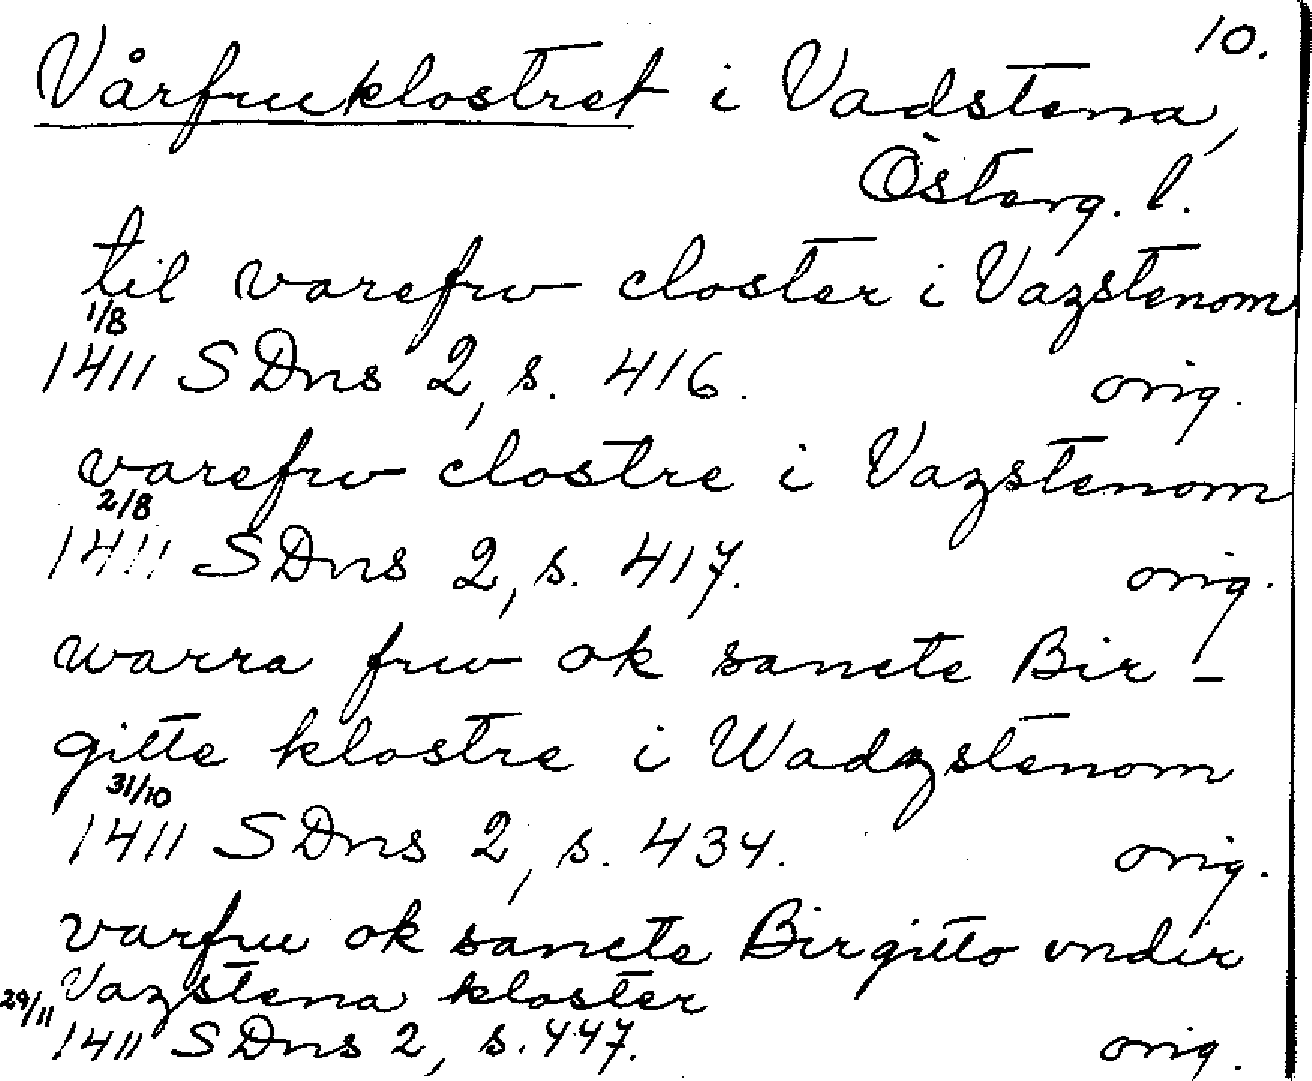 10.
Vårfruklostret i Vadstena,
Österg. l.
til varefrw closter i Vazstenom
1/8
1411 SDns 2, s. 416. orig.
varefrw clostre i Vazstenom
2/8
1411 SDns 2, s. 417. orig.
warra frw ok sancte Bir-
gitte klostre i Wadzstenom
31/10
1411 SDns 2, s. 434. orig.
varfru ok sancte Birgitto vndir
Vazstena kloster
29/11
1411 SDns 2, s. 447. orig.